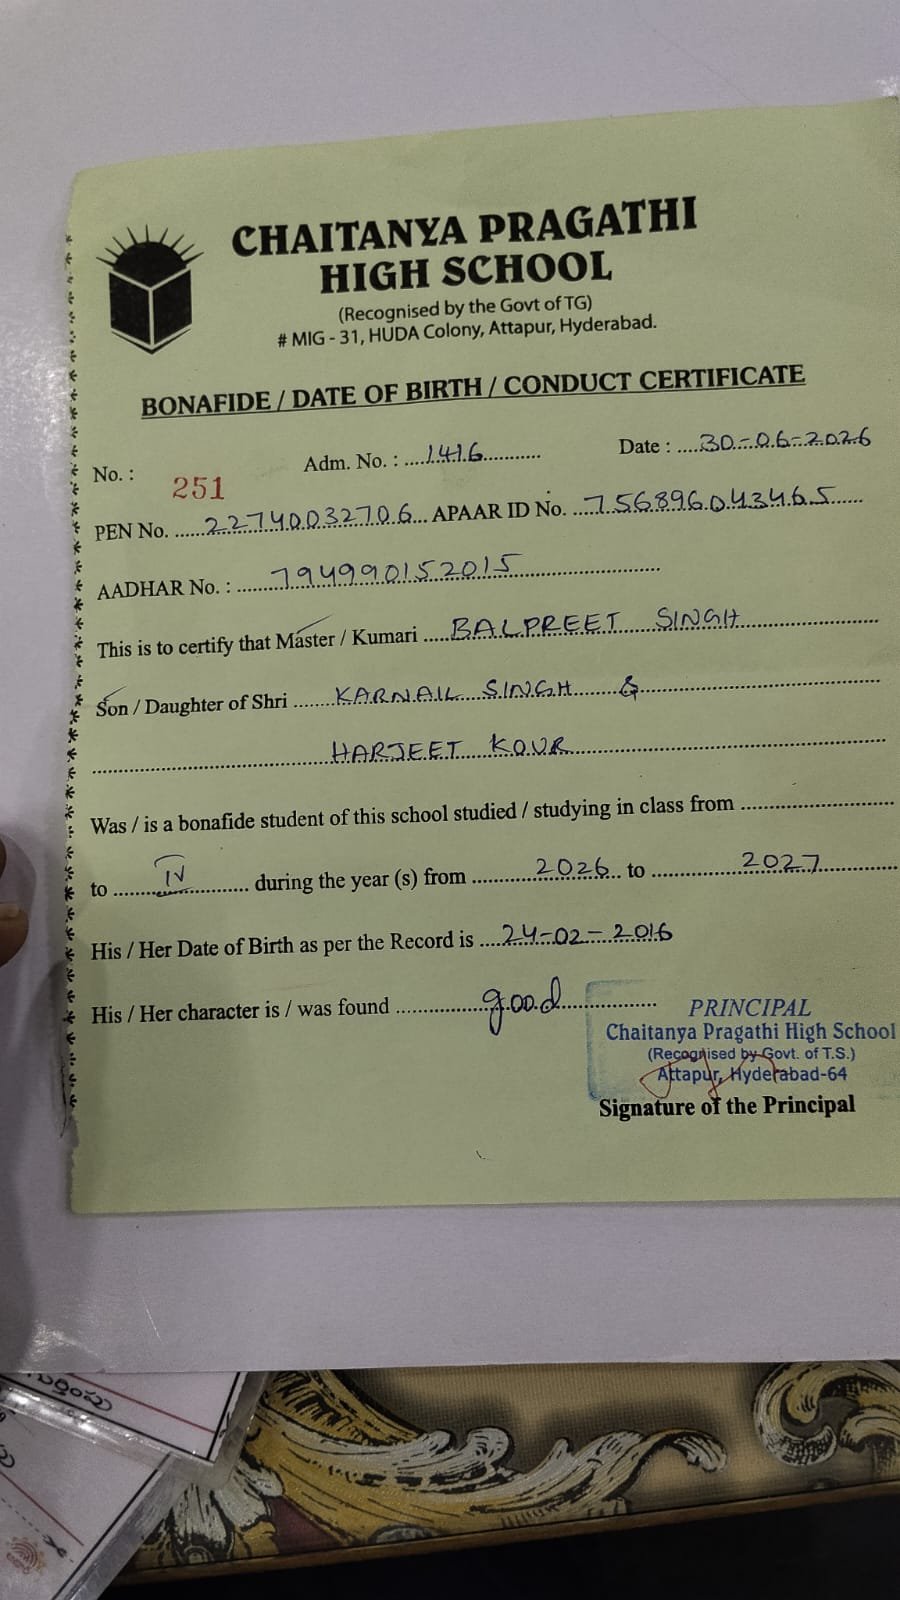 CHAITANYA PRAGATHI
HIGH SCHOOL
(Recognised by the Govt of TG)
# MIG - 31, HUDA Colony, Attapur, Hyderabad.
BONAFIDE / DATE OF BIRTH / CONDUCT CERTIFICATE
No. : 251 Adm. No. : 1416 Date : 30-06-2026
PEN No. 22740032706 APAAR ID No. 756896043465
AADHAR No. : 794990152015
This is to certify that Master / Kumari BALPREET SINGH
Son / Daughter of Shri KARNAIL SINGH &
HARJEET KOUR
Was / is a bonafide student of this school studied / studying in class from
to IV during the year (s) from 2026 to 2027
His / Her Date of Birth as per the Record is 24-02-2016
His / Her character is / was found good
PRINCIPAL
Chaitanya Pragathi High School
(Recognised by Govt. of T.S.)
Attapur, Hyderabad-64
Signature of the Principal